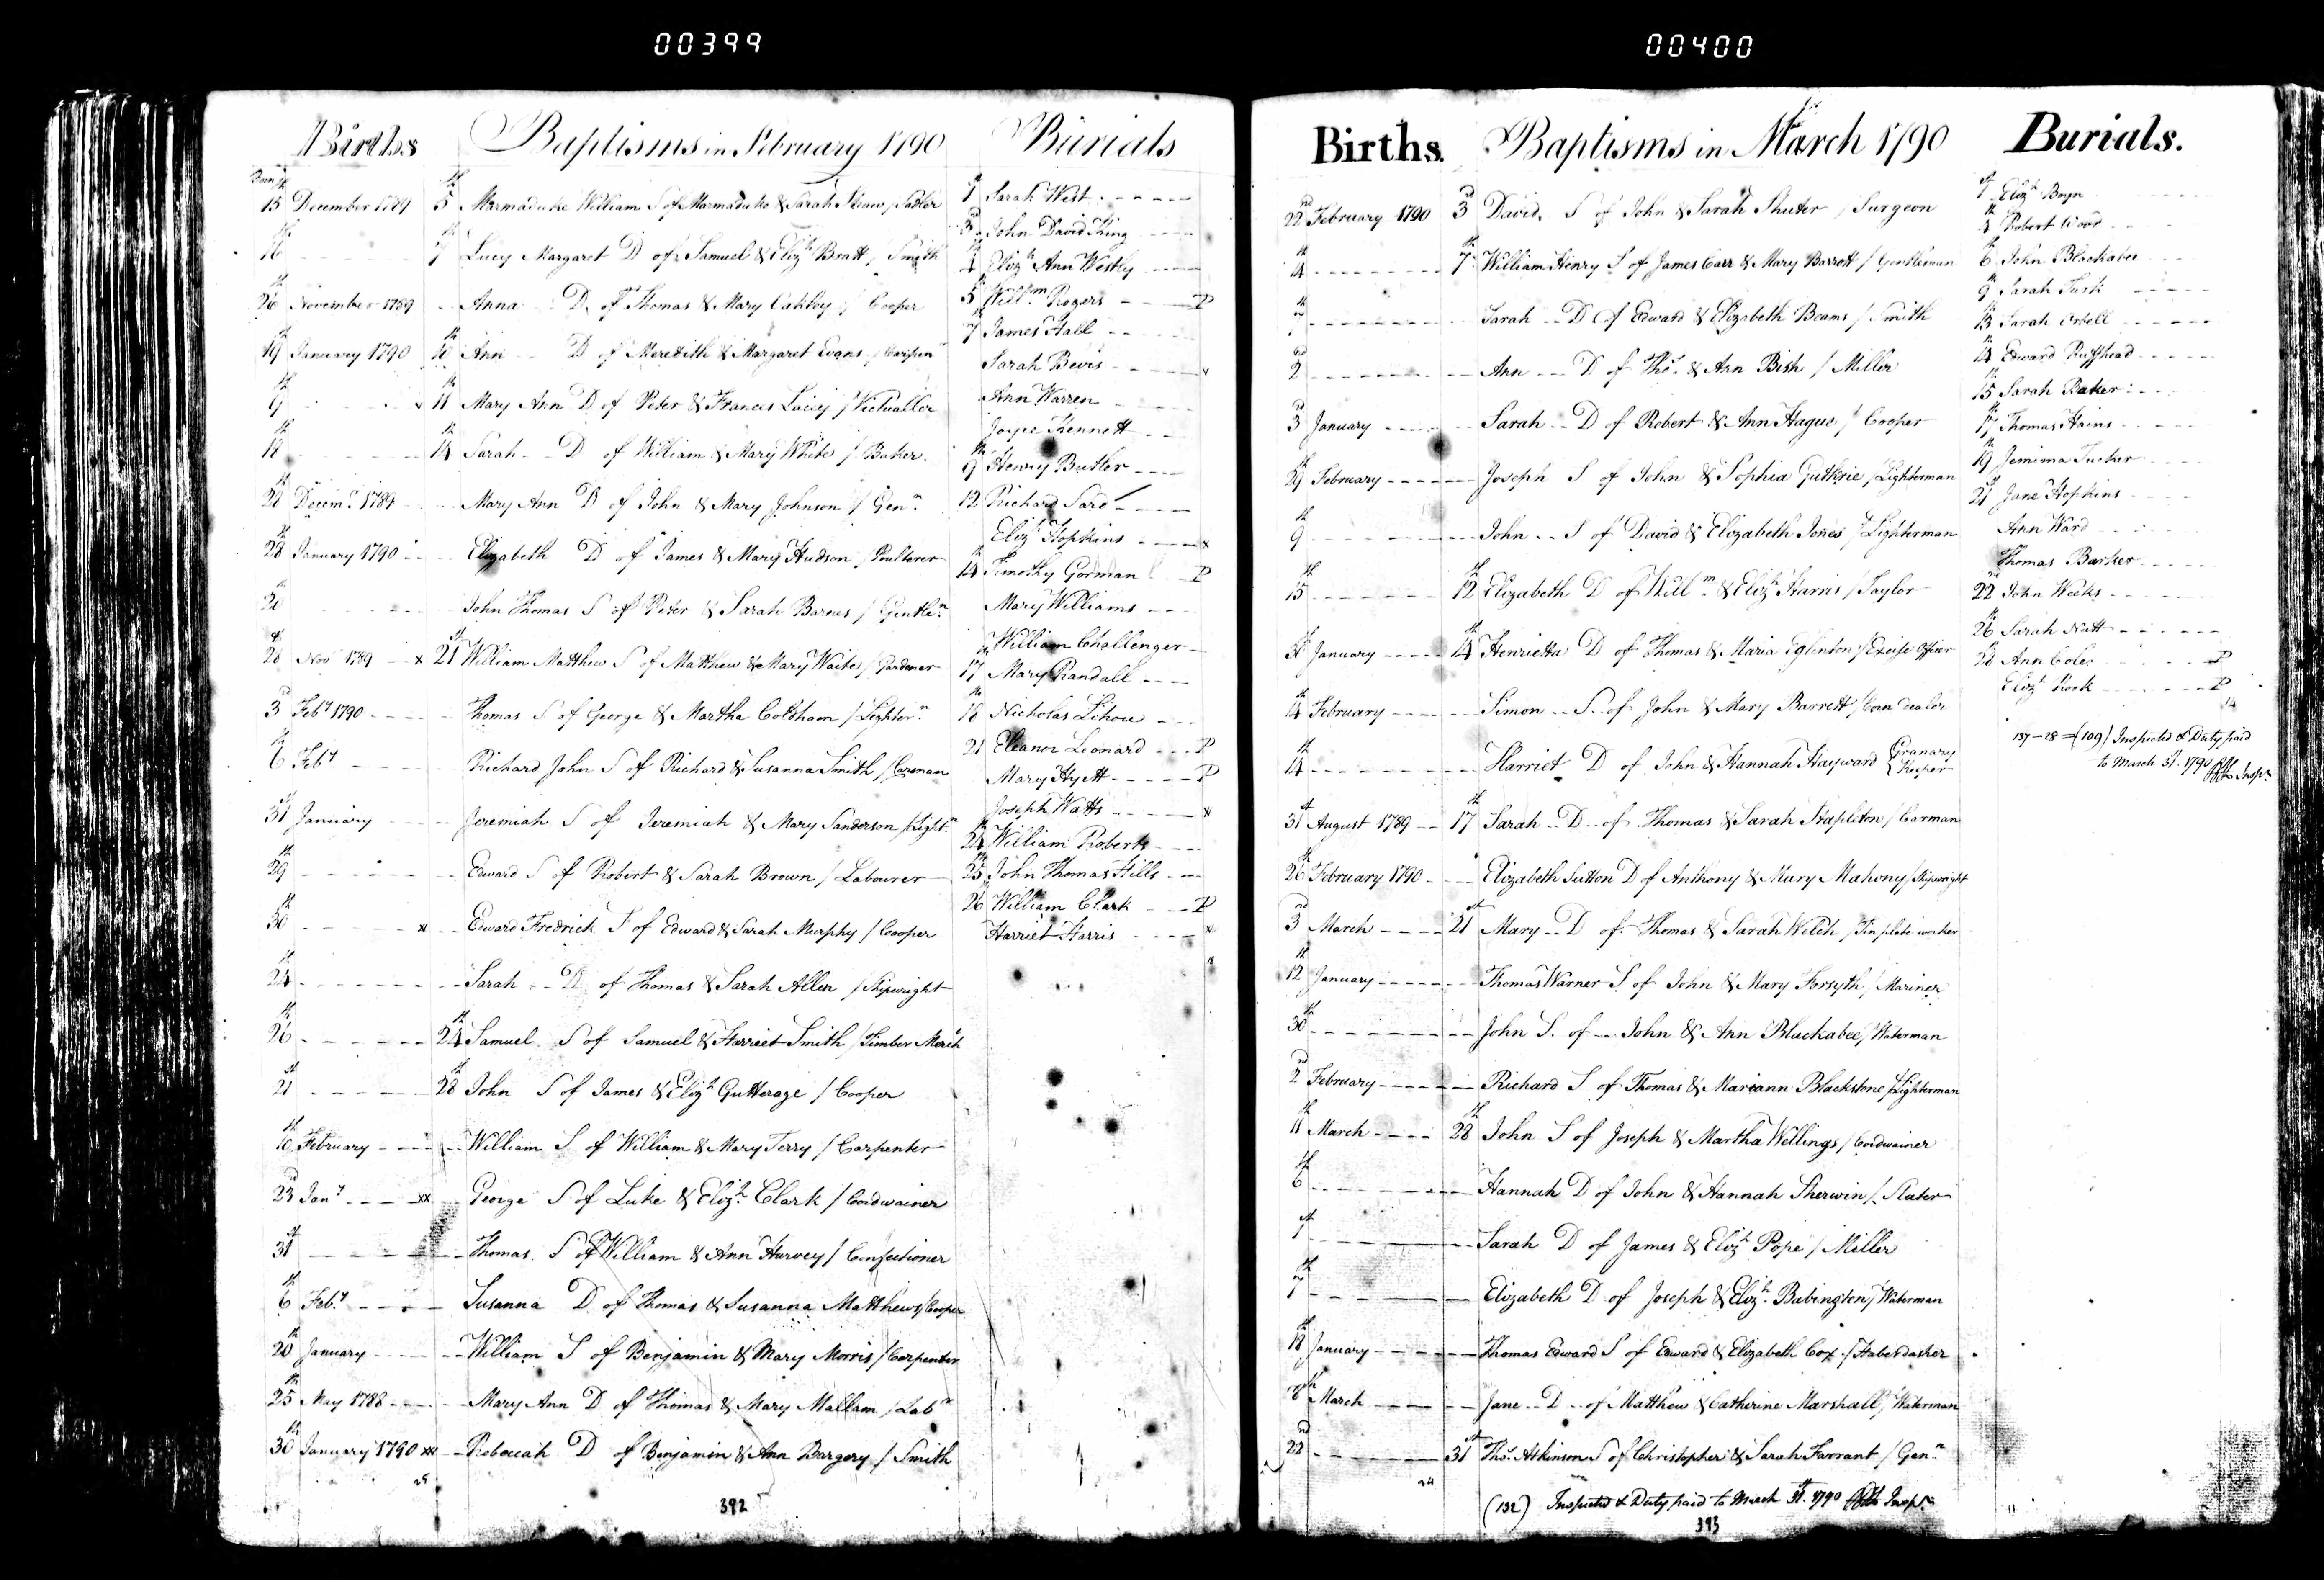 00399
Births Baptisms in February 1790 Burials
Born
15th December 1789 5th Marmaduke William S of Marmaduke & Sarah Shaw / Sadler
16th 7th Lucy Margaret D of Samuel & Elizth Bratt / Smith
26th November 1789 Anna D of Thomas & Mary Oakley / Cooper
19th January 1790 10th Ann D of Meredith & Margaret Evans / Carpenr
9th x 11th Mary Ann D of Peter & Frances Lacey / Victualler
18th 14th Sarah D of William & Mary White / Baker
28th Decemr 1789 Mary Ann D of John & Mary Johnson / Genn
28th January 1790 Elizabeth D of James & Mary Hudson / Poulterer
20 John Thomas S of Peter & Sarah Barnes / Gentlen
28th Novr 1789 x 21st William Matthew S of Matthew & Mary Waite / Gardener
3rd Feby 1790 Thomas S of George & Martha Coldham / Lightern
6th Feby Richard John S of Richard & Susanna Smith / Carman
31st January Jeremiah S of Jeremiah & Mary Sanderson / Lightn
29th Edward S of Robert & Sarah Brown / Labourer
30th x Edward Fredrick S of Edward & Sarah Murphy / Cooper
24th Sarah D of Thomas & Sarah Allen / Shipwright
26th 24th Samuel S of Samuel & Harriet Smith / Timber Mercht
21st 28th John S of James & Elizth Gutterage / Cooper
10th February William S of William & Mary Terry / Carpenter
23rd Jany xx George S of Luke & Elizth Clark / Cordwainer
31st Thomas S of William & Ann Harvey / Confectioner
6th Feby Susanna D of Thomas & Susanna Matthews / Cooper
20th January William S of Benjamin & Mary Morris / Carpenter
25th May 1788 Mary Ann D of Thomas & Mary Mallam / Labr
30th January 1790 xx Rebeccah D of Benjamin & Ann Bargery / Smith
25
1st Sarah West
3d John David King
4th Elizth Ann Westly
5th Willm Rogers P
7th James Hall
Sarah Bevis x
Ann Warren
Joyce Kennett
9th Henry Butler
12 Richard Sard
Elizth Hopkins x
14th Timothy Gorman P
Mary Williams
William Challenger
17th Mary Randall
18th Nicholas Lihou
21 Eleanor Leonard P
Mary Hyett P
Joseph Watts x
24th William Roberts
25th John Thomas Hills
26th William Clark P
Harriet Harris x
392
00400
Births. Baptisms in March 1790 Burials.
22nd February 1790 3rd David S of John & Sarah Shuter / Surgeon
4th 7th William Henry S of James Carr & Mary Barrett / Gentleman
7th Sarah D of Edward & Elizabeth Beams / Smith
2nd Ann D of Thos. & Ann Bish / Miller
3rd January Sarah D of Robert & Ann Hague / Cooper
29th February Joseph S of John & Sophia Guthrie / Lighterman
9th John S of David & Elizabeth Jones / Lighterman
15th 12th Elizabeth D of Willm & Elizth Harris / Taylor
31st January 14th Henrietta D of Thomas & Maria Eglinton / Excise Officer
14th February Simon S of John & Mary Barrett / Corn Dealer
14th Harriet D of John & Hannah Hayward { Granary Keeper
31st August 1789 17th Sarah D of Thomas & Sarah Stapleton / Carman
26th February 1790 Elizabeth Sutton D of Anthony & Mary Mahony / Shipwright
3rd March 21st Mary D of Thomas & Sarah Welch / Tin plate worker
12th January Thomas Warner S of John & Mary Forsyth / Mariner
30th John S. of John & Ann Bluckabee / Waterman
2nd February Richard S of Thomas & Mariann Blackstone / Lighterman
11th March 28th John S of Joseph & Martha Wellings / Cordwainer
6th Hannah D of John & Hannah Sherwin / Slater
1st Sarah D of James & Elizth Pope / Miller
7th Elizabeth D of Joseph & Elizth Babington / Waterman
18th January Thomas Edward S of Edward & Elizabeth Cox / Haberdasher
8th March Jane D of Matthew & Catherine Marshall / Waterman
22nd 31st Thos. Atkinson S of Christopher & Sarah Farrant / Genn
24
(132) Inspected & Duty paid to March 31st. 1790 Inspr
1st Elizth Boyn
4th Robert Wood
6th John Blackabee
9th Sarah Tusk
13th Sarah Orbell
14th Edward Ruffhead
15th Sarah Baker
17th Thomas Hains
19th Jemima Tucker
21st Jane Hopkins
Ann Ward
Thomas Barker
22nd John Weeks
26th Sarah Nutt
28th Ann Cole P
Elizth Rook P
14
137 – 28 = (109) Inspected & Duty paid
to March 31. 1790 Inspr
393